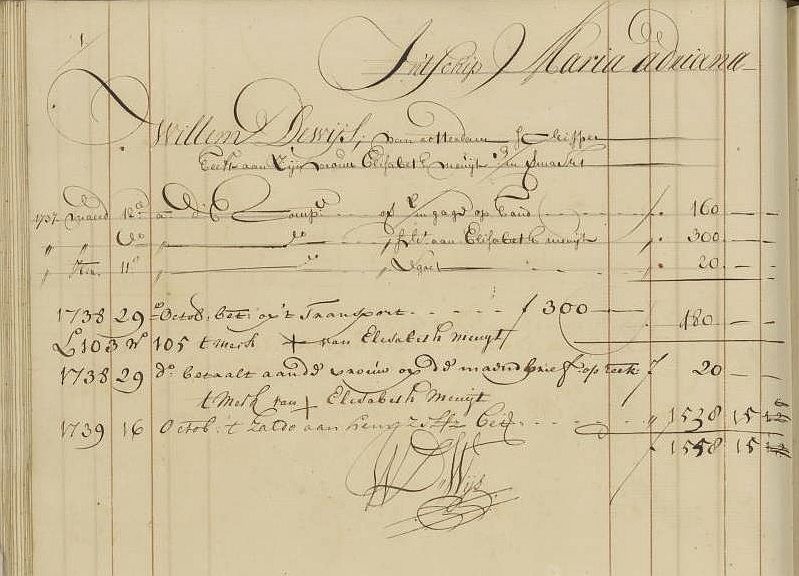 1
Int Schip Maria adriana
Willem Dewijs, van rotterdam Schipper
aan Zijn vrouw Elisabeth meuijt
1737 12 a d' E Comp: op hand 160
" " do do aan Elisabeth meuijt 300
" 11 " do 20
1738 29 Octob: bet: op't Transport f 300 480
L 103 N 105 t merk + van Elisabeth meuijt
1738 29 do betaalt aan de vrouw op de maendbrief op reek: f 20
t merk van + Elisabeth meuijt
1739 16 Octob: t Zaldo aan hem Zelfs bet: 1538 15
1558 15
W D Wijs